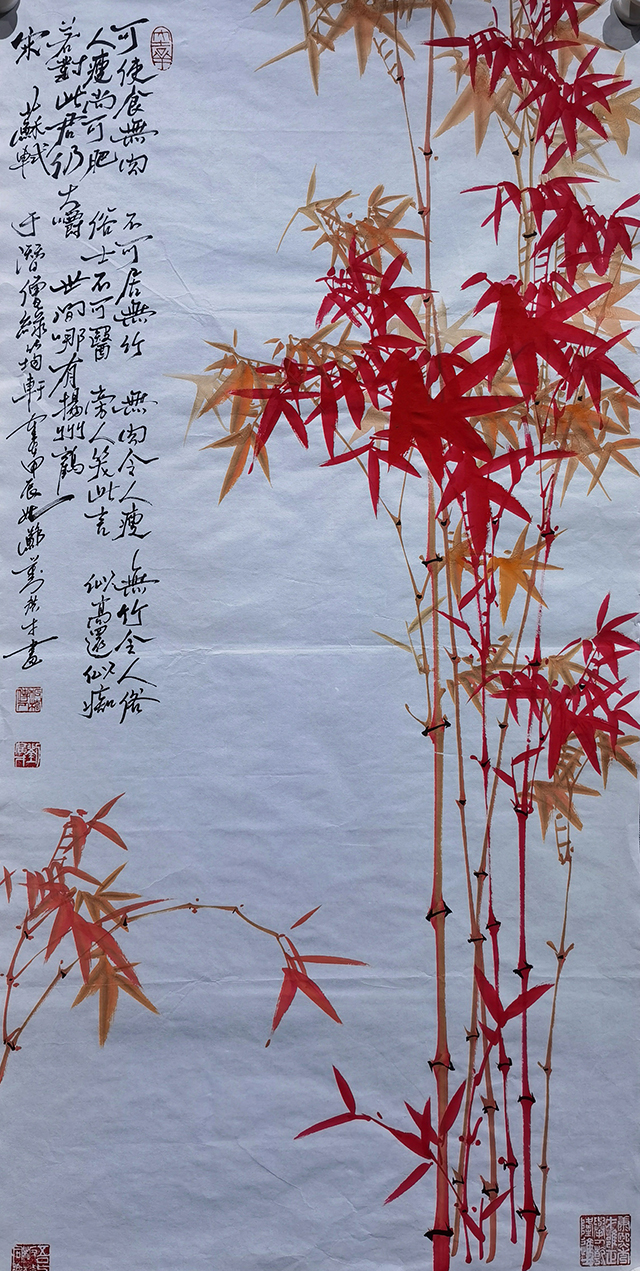 可使食無肉 不可居無竹 無肉令人瘦 無竹令人俗
人瘦尚可肥 俗士不可醫 旁人笑此言 似高還似痴
若對此君仍大嚼 世間哪有揚州鶴
宋 蘇軾 于潛僧綠筠軒 甲辰 畫